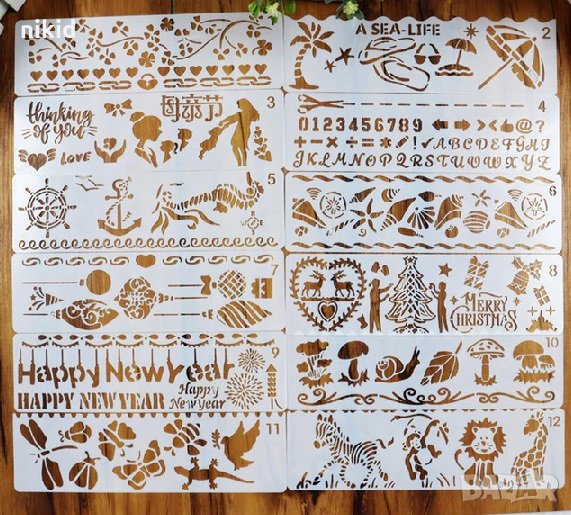 nikid
A SEA-LIFE
2
thinking
of you
LOVE
母亲节
3
4
0123456789
+ - × ÷ = * ! ✓ ABCDEFGHI
JKLMNOPQRSTUVWXYZ
@?
5
6
7
8
MERRY
CHRISTMAS
9
Happy New Year
HAPPY NEW YEAR
Happy
New Year
10
11
12
BAZAR